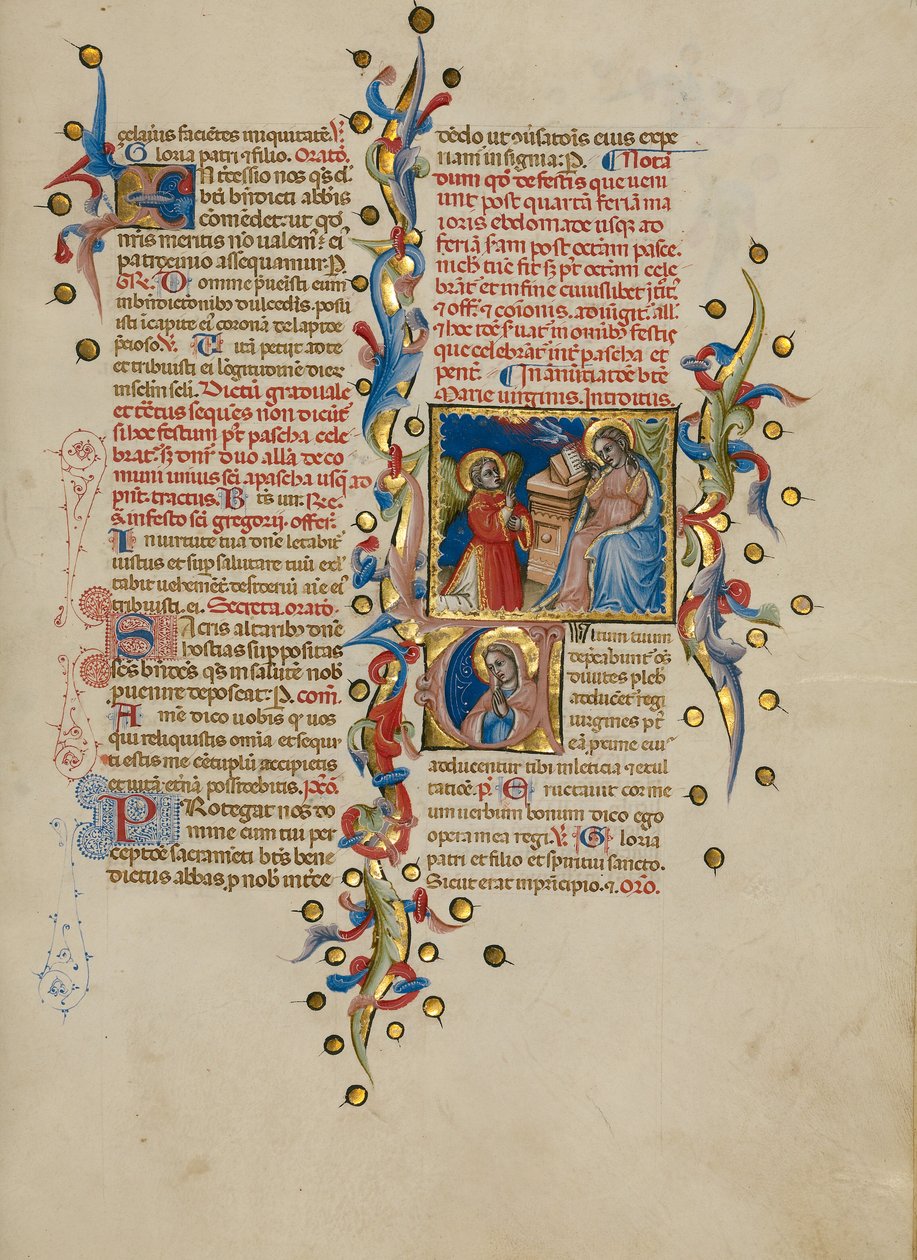 celauus faciẽtes iniquitatẽ. ℣.
Gloria patri ⁊ filio. Orato.
Intc̃essio nos qs dñe
bt̃i bñdicti abb̃is
comẽdet: ut qd̾
nr̃is meritis nõ valem⁹: ei⁹
patrocinio assequamur. P.
GR. Domine pueisti eum
in bñdictionib⁹ dulcedis. posu
isti ĩ capite ei⁹ coronã de lapide
p̃cioso. ℣. Vitã petiit a te
et tribuisti ei lõgitudinẽ dier
in sc̃lm sc̃li. Dictũ graduale
et tc̃tus sequẽs non dicũt᷑
si hoc festum pt̾ pascha cele
brat᷑. sʒ dñr duo all̃a de cõ
muni unius sc̃i a pascha usqʒ ad
pñt. tractus. Bt̃s uir. Re
in festo sc̃i gregorij. offer.
In uirtute tua dñe letabit᷑
iustus et sup salutare tuũ exl
tabit uehemẽt̾. desideriũ aĩe ei⁹
tribuisti ei. Secreta. orato.
Sacris altarib⁹ dñe
hostias suppositas
sc̃s bñdict⁹ qs in salutẽ nob̃
puenire deposcat. P. com̃.
Amẽ dico uobis qr uos
qui reliquistis omĩa et sequ
ti estis me cẽtuplũ accipietis
et uitã et̾nã possidebitis. p̃co.
Protegat nos do
mine cum tui per
ceptõe sacramẽti bt̃s bene
dictus abbas. p nob̃ int̾ce
dẽdo ut ⁊ ↄũsatõis eius expe
riam⁹ insignia. P. ¶ Nota
dum qd̾ de festis que ueni
unt post quartã feriam ma
ioris ebdomade usqʒ ad
feriã s̃am post octam̃ pasce.
nich̾ tũc fit sʒ pt̾ octam̃ cele
brãt᷑ et in fine cuiuslibet ĩt͂it⁹.
⁊ off̃. ⁊ cõionis. adiũgit᷑. all̃.
⁊ hoc idẽ s̃uat᷑ in omĩbus festis
que celebrãt᷑ int̾ pascha et
pent̃. ¶ In anũtiatõe bt̃e
Marie uirginis. Introitus.
Vultum tuum
dep̃cabunt᷑ oẽs
diuites pleb̃
adducẽt᷑ regi
uirgines pt̾
eã p̃xime eius
adducentur tibi in leticia ⁊ exul
tatiõe. p. Eructauit cor me
um uerbum bonum dico ego
opera mea regi. ℣. Gloria
patri et filio et spiritui sancto.
Sicut erat in p̃ncipio. ⁊. Or̃o.